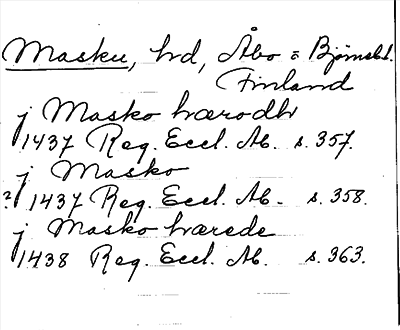 Masku, hd, Åbo o Björnebd.
Finland
j Masko hærodh
1437 Reg. Eccl. Ab. s. 357.
j Masko
? 1437 Reg. Eccl. Ab. s. 358.
j Masko hærede
1438 Reg. Eccl. Ab. s. 363.